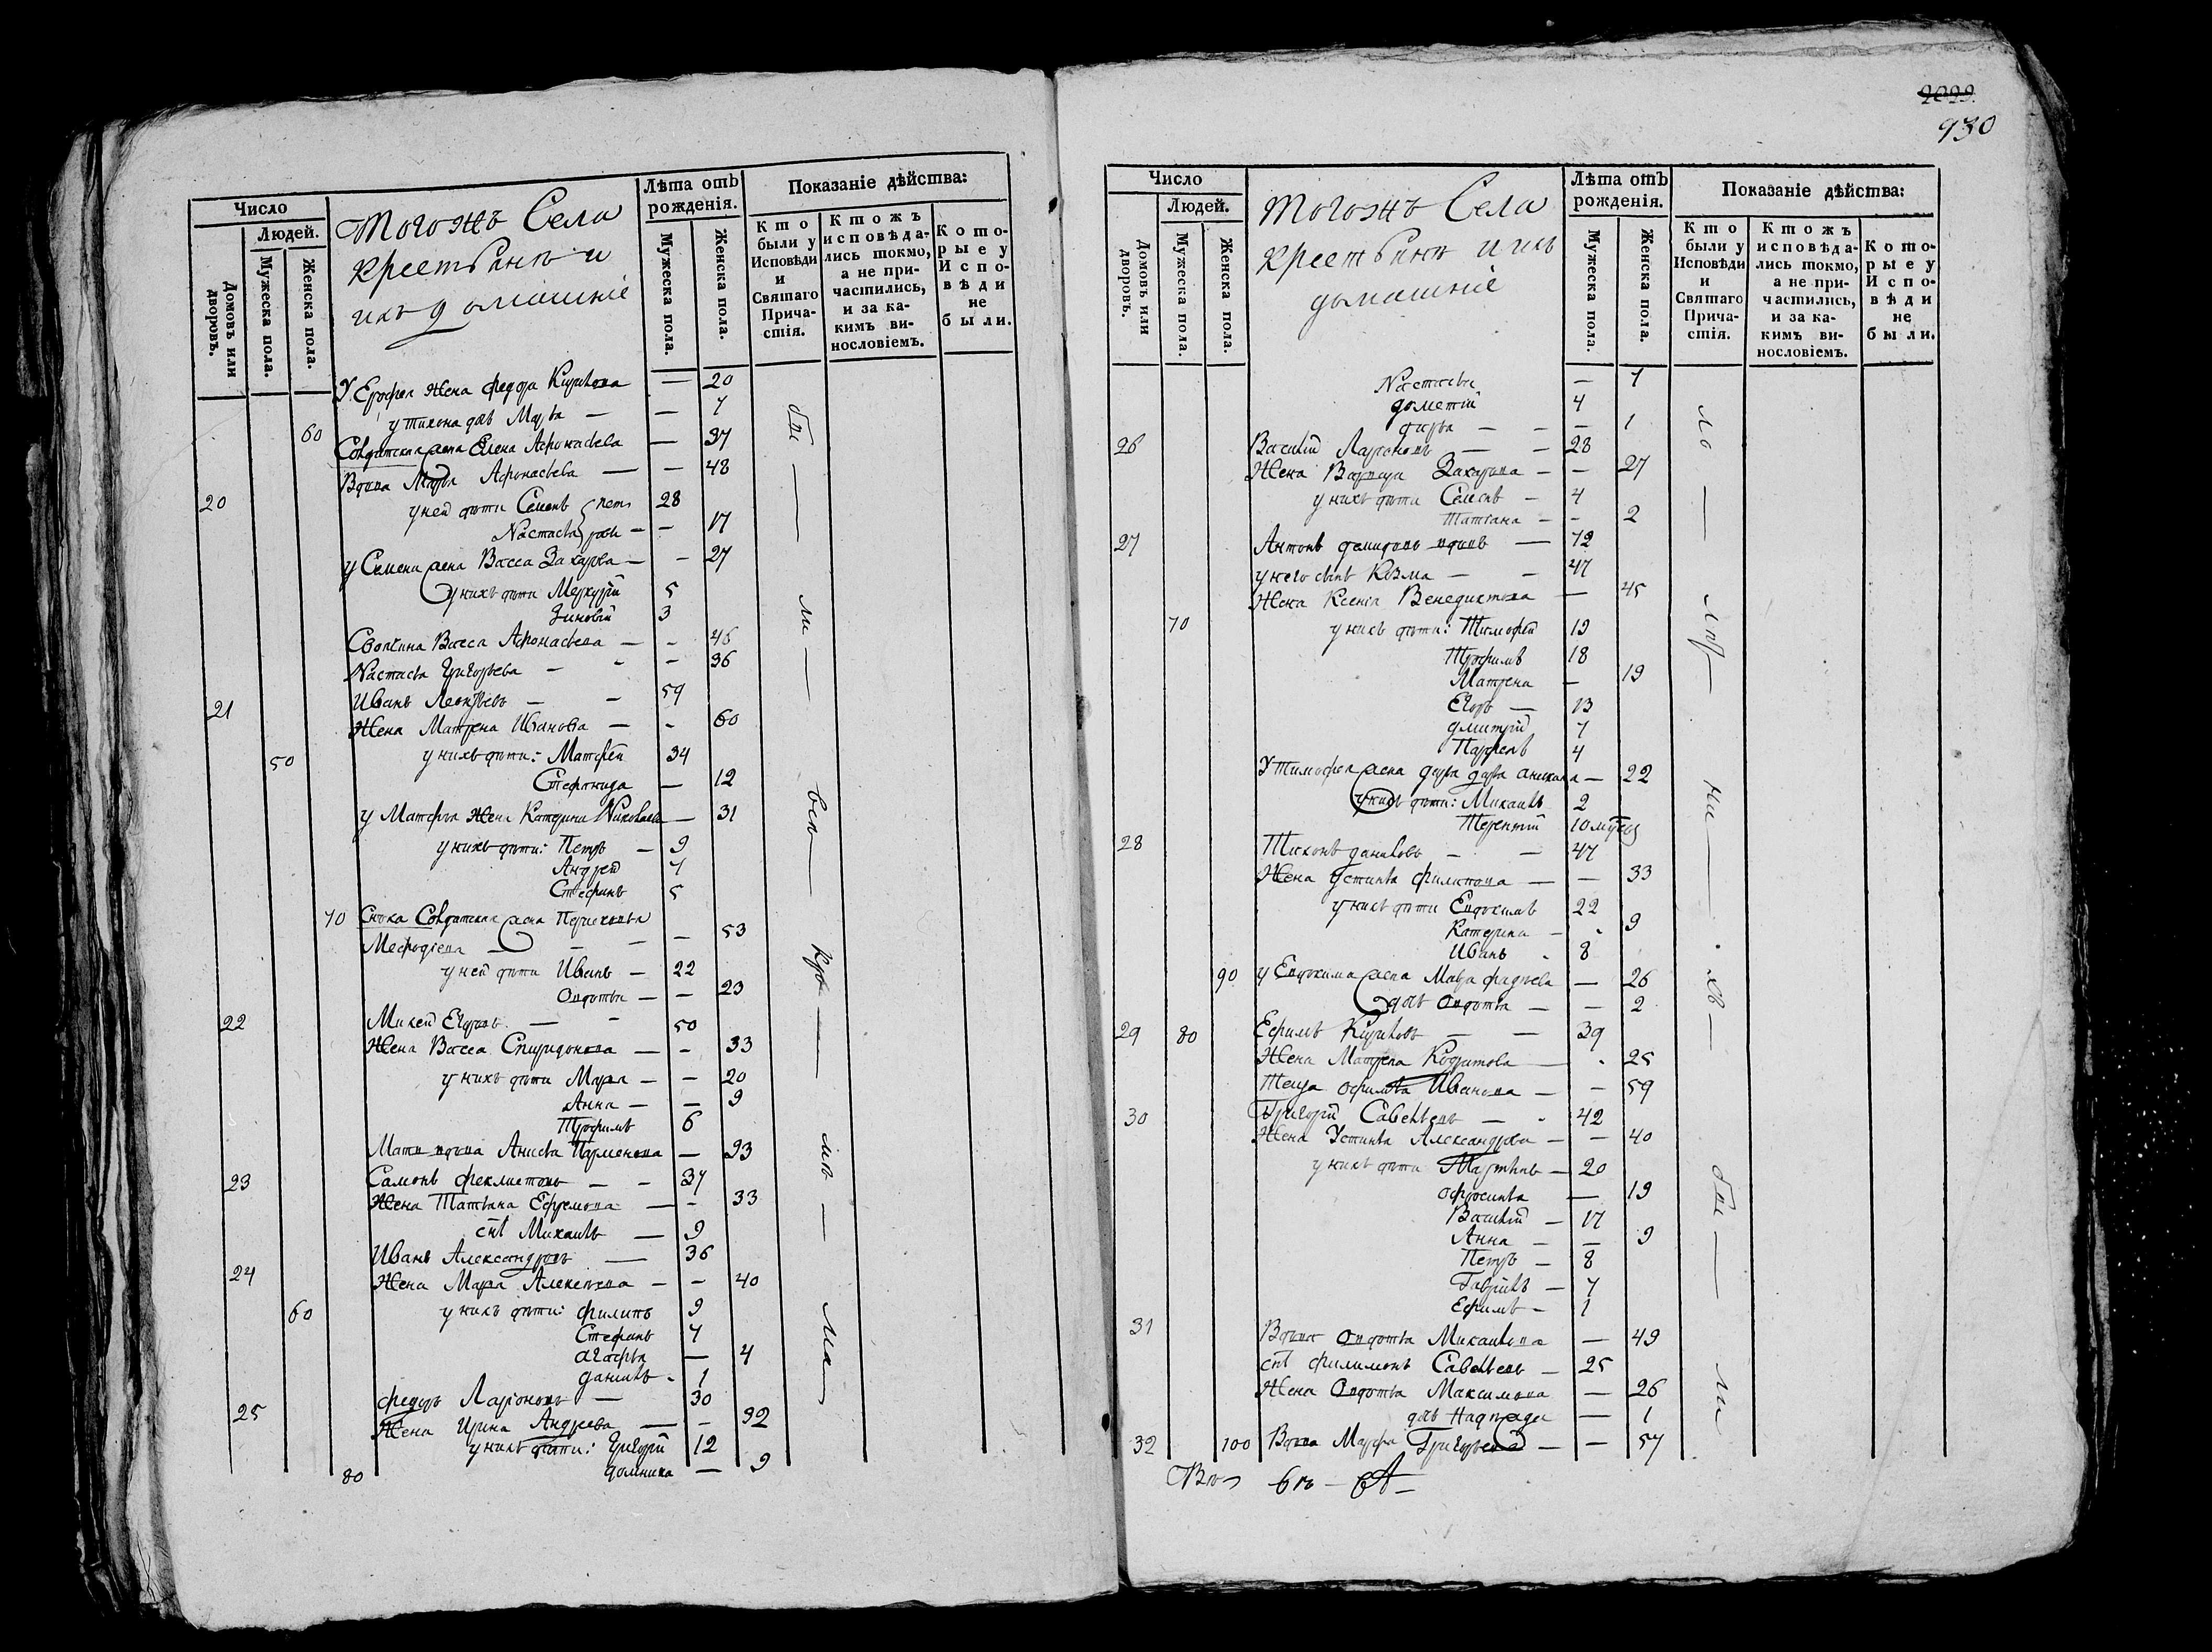 Число
Людей.
Домовъ или дворовъ.
Мужеска пола.
Женска пола.
Тогожъ Села
крестьяне и
ихъ домашніе
Лѣта отъ
рожденія.
Мужеска пола.
Женска пола.
Показаніе дѣйства:
Кто были у Исповѣди и Святаго Причастія.
Ктожъ исповѣдались токмо, а не причастились, и за какимъ винословіемъ.
Которые у Исповѣди не были.
У Ерофея жена Федора Кирилова — 20
у Тихона дѣв Марья — — 7
60 Солдатская жена Елена Афонасьева — 37
20 Вдова Марья Афонасьева — — 48
у ней дѣти Семенъ 28
Настасья — 17
у Семена жена Васса Захарова — — 27
у нихъ дѣти Меркурій 5
Зиновій 3
Васса Афонасьева — - 46
Настасья Григорьева — - - 36
21 Иванъ Леонтьевъ — - 59
Жена Матрена Иванова — - 60
50 у нихъ дѣти: Матфей 34
Стефанида — 12
у Матфея жена Катерина Николаева — 31
у нихъ дѣти: Петръ — 9
Андрей 7
Стефанъ 5
70 Сноха Солдатская жена
Мефодіева — — - 53
у ней дѣти Иванъ — 22
Овдотья — — 23
22 Михей Егоровъ — - 50
Жена Васса Спиридонова — - 33
у нихъ дѣти Марья — - 20
Анна — — 9
Трофимъ 6
Мать вдова Анисья Парменова — 93
23 Самонъ Феклистовъ — - 37
Жена Татьяна Ефремова — - 33
сиъ Михаилъ — 9
24 Иванъ Александровъ — 36
Жена Марья Алексѣева — - 40
60 у нихъ дѣти: Филипъ 9
Стефанъ 7
Агафья — 4
Данилъ - 1
25 Федоръ Ларіоновъ — 30
Жена Ирина Андреева — - 32
у нихъ дѣти: Григорій 12
80 Домника — 9
2029.
930
Число
Людей.
Домовъ или дворовъ.
Мужеска пола.
Женска пола.
Тогожъ Села
крестьяне и ихъ
домашніе
Лѣта отъ
рожденія.
Мужеска пола.
Женска пола.
Показаніе дѣйства:
Кто были у Исповѣди и Святаго Причастія.
Ктожъ исповѣдались токмо, а не причастились, и за какимъ винословіемъ.
Которые у Исповѣди не были.
Настасья — 7
Дометій 4
Дарья — — — 1
26 Василій Ларіоновъ — 28
Жена Варвара Захарова — — 27
у нихъ дѣти Семенъ — 4
Татіана — - 2
27 Антонъ Демидовъ вдовъ — 72
у него сынъ Козма — — 47
Жена Ксенія Венедиктова — 45
70 у нихъ дѣти: Тимофей 19
Трофимъ 18
Матрена — 19
Егоръ — 13
Дмитрій 7
Парфенъ 4
У Тимофея жена Дарья — 22
у нихъ дѣти: Михаилъ 2
Терентій 10 мѣсяц
28 Тихонъ Даниловъ - — 47
Жена Устинья Филипова — — 33
у нихъ дѣти Евдокимъ 22
Катерина — - 9
Иванъ - 8
90 у Евдокима жена Марья Фадѣева — 26
дѣв Овдотья — — 2
29 80 Ефимъ Кириловъ — — 39
Жена Матрена — - 25
Теща Офимья Иванова — — 59
30 Григорій Савельевъ — - 42
Жена Устинья Александрова — — 40
у нихъ дѣти Мартинъ — 20
Офросинья — 19
Василій — 17
Анна — — 9
Петръ — 8
Гаврилъ — 7
Ефимъ — 1
31 Вдова Овдотья Михаилова — 49
сиъ Филимонъ Савельевъ — 25
Жена Овдотья Максимова — 26
дѣв — 1
32 100 Вдова Марфа Григорьева — — 57